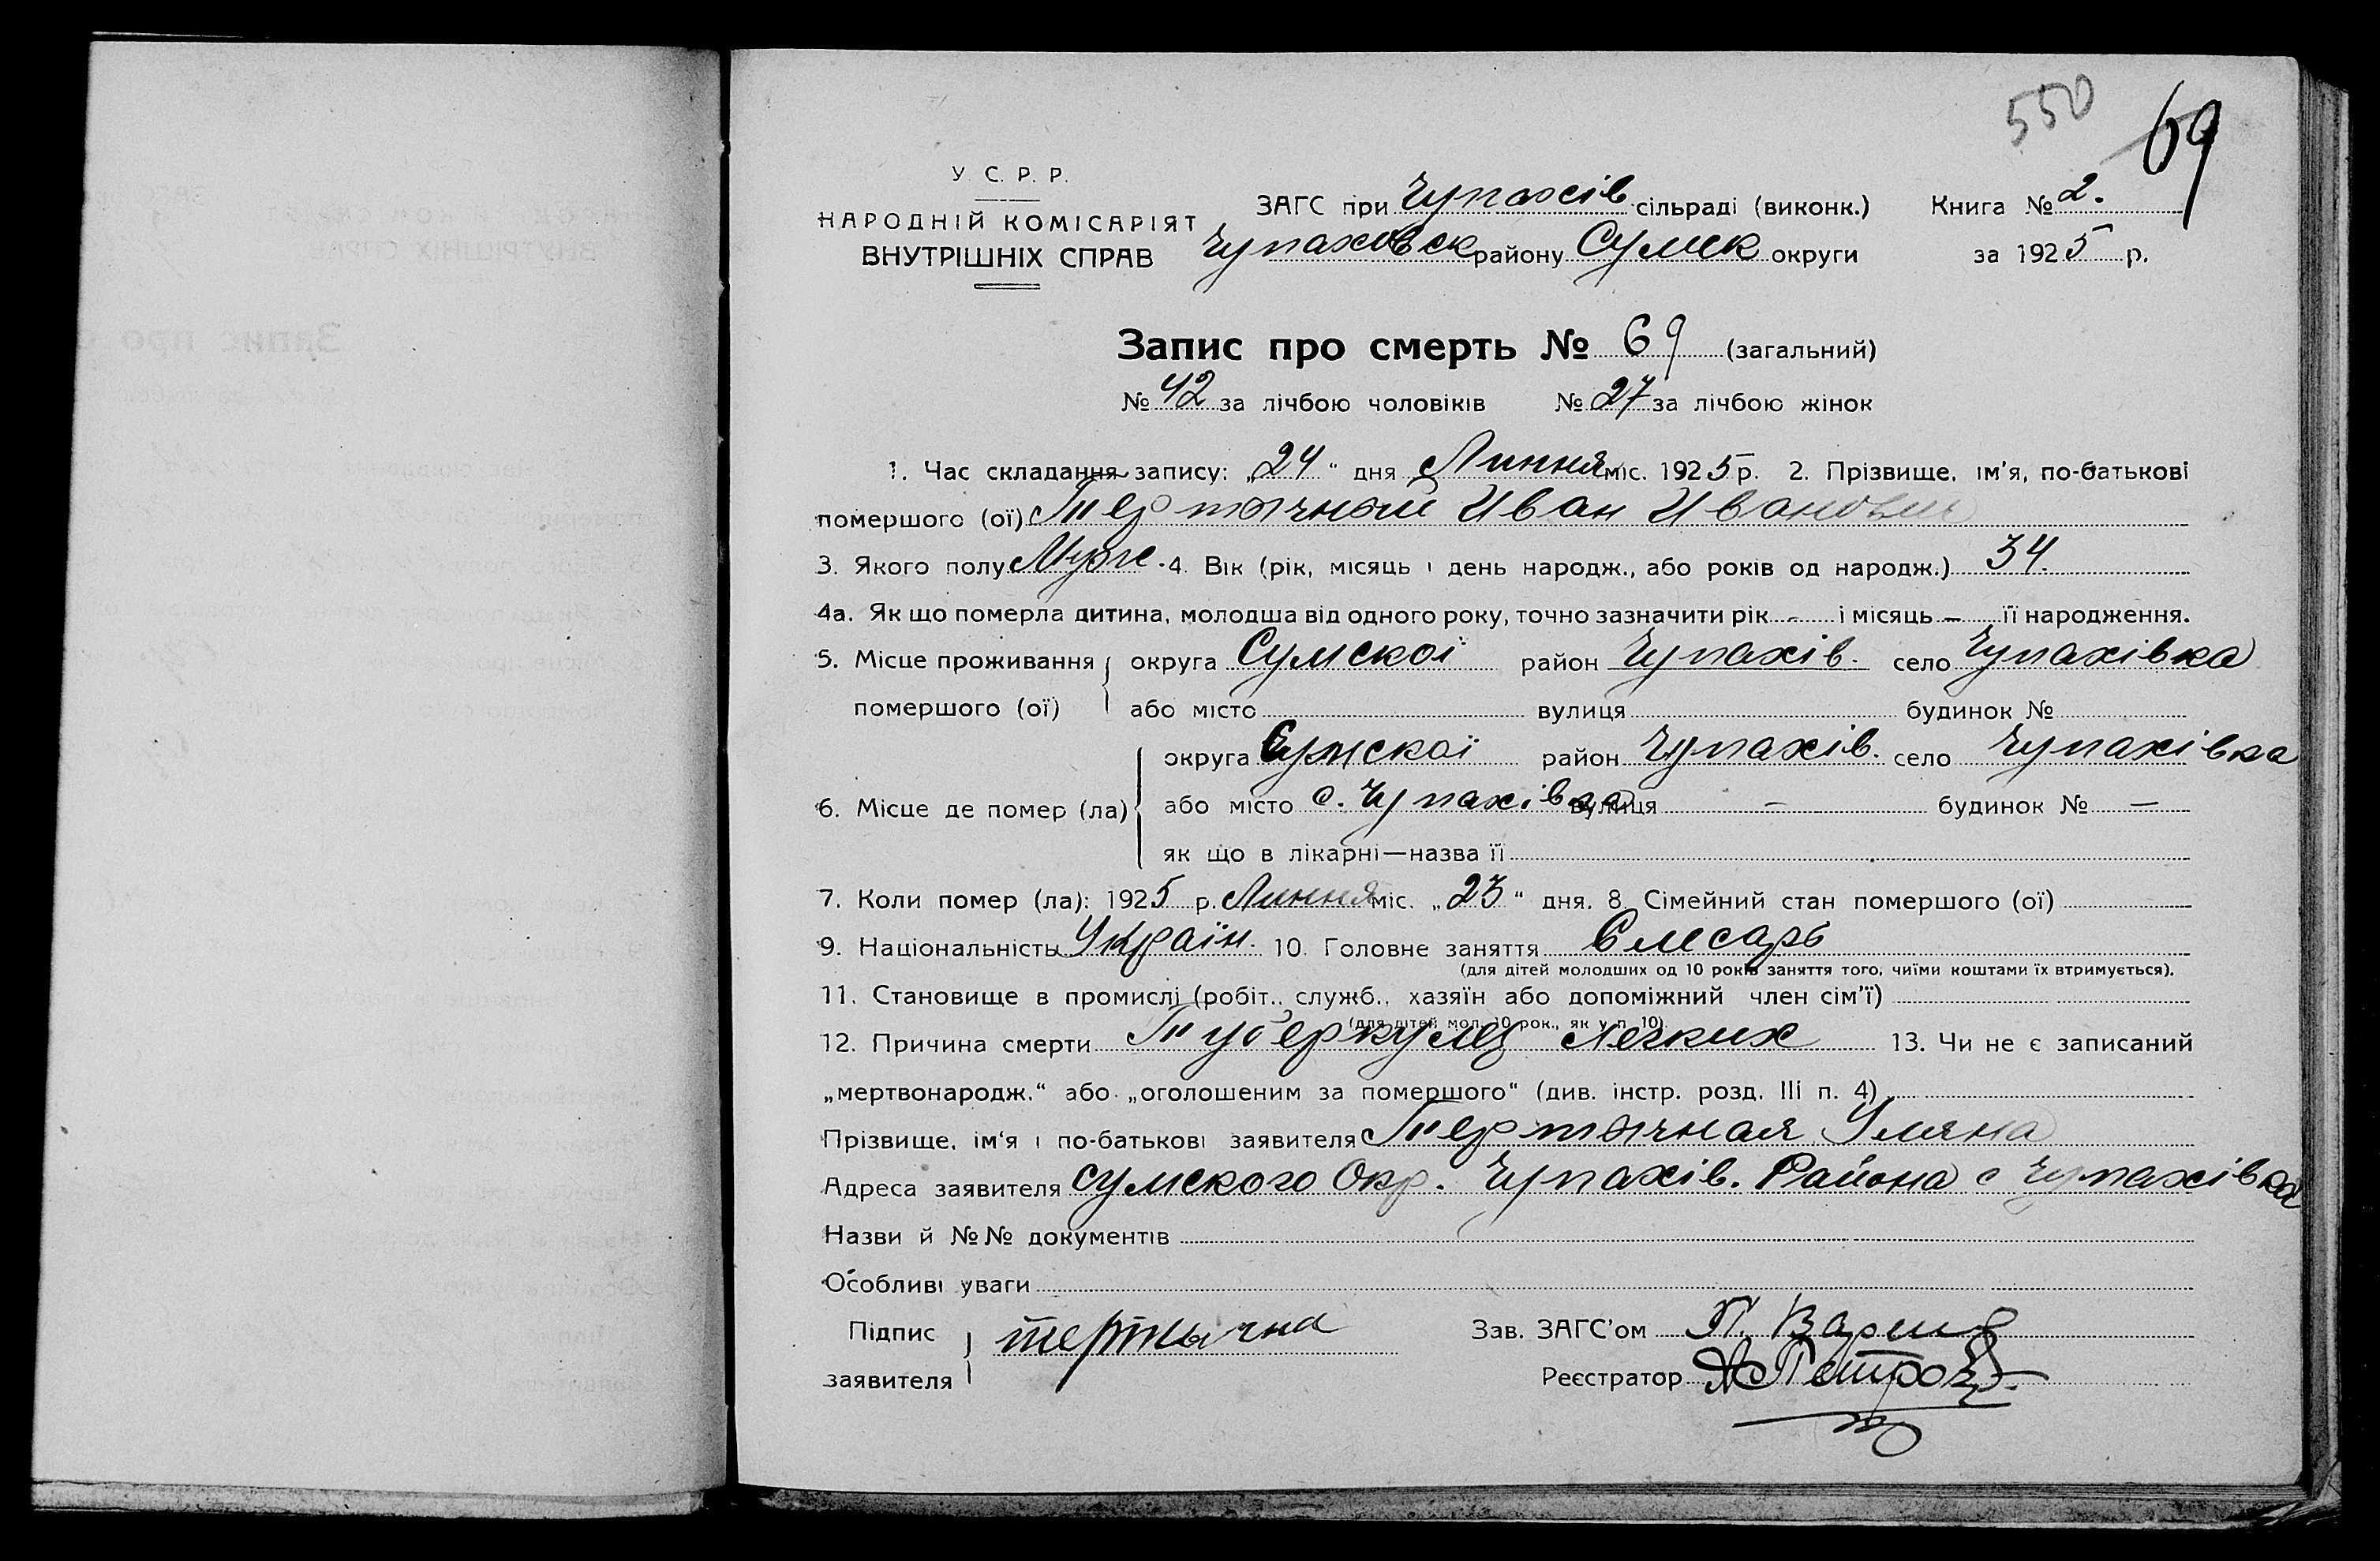 550 69
У. С. Р. Р.
НАРОДНІЙ КОМІСАРІЯТ
ВНУТРІШНІХ СПРАВ
ЗАГС при Чупахів. сільраді (виконк.) Книга № 2.
Чупаховск району Сумск округи за 1925 р.
Запис про смерть № 69 (загальний)
№ 42 за лічбою чоловіків № 27 за лічбою жінок
1. Час складання запису: „24“ дня Липня міс. 1925 р. 2. Прізвище, ім’я, по-батькові
помершого (ої) Тертычный Иван Иванович
3. Якого полу Муж. 4. Вік (рік, місяць і день народж., або років од народж.) 34.
4а. Як що померла дитина, молодша від одного року, точно зазначити рік - і місяць — її народження.
5. Місце проживання округа Сумскоі район Чупахів. село Чупахівка
помершого (ої) або місто вулиця будинок №
округа Сумскоі район Чупахів. село Чупахівка
6. Місце де помер (ла) або місто с. Чупахівка вулиця — будинок № —
як що в лікарні—назва її
7. Коли помер (ла): 1925 р. Липня міс. „23“ дня. 8. Сімейний стан помершого (ої)
9. Національність Україн. 10. Головне заняття Слесарь
(для дітей молодших од 10 років заняття того, чиїми коштами їх втримується).
11. Становище в промислі (робіт., служб., хазяїн або допоміжний член сім’ї)
(для дітей мол. 10 рок., як у п. 10).
12. Причина смерти Туберкулез легких 13. Чи не є записаний
„мертвонародж.“ або „оголошеним за помершого“ (див. інстр. розд. III п. 4)
Прізвище, ім‘я і по-батькові заявителя Тертычная Уляна
Адреса заявителя Сумского Окр. Чупахів. Района с Чупахівка
Назви й №№ документів
Особливі уваги
Підпис тертычна Зав. ЗАГС’ом П.
заявителя Реєстратор Петров